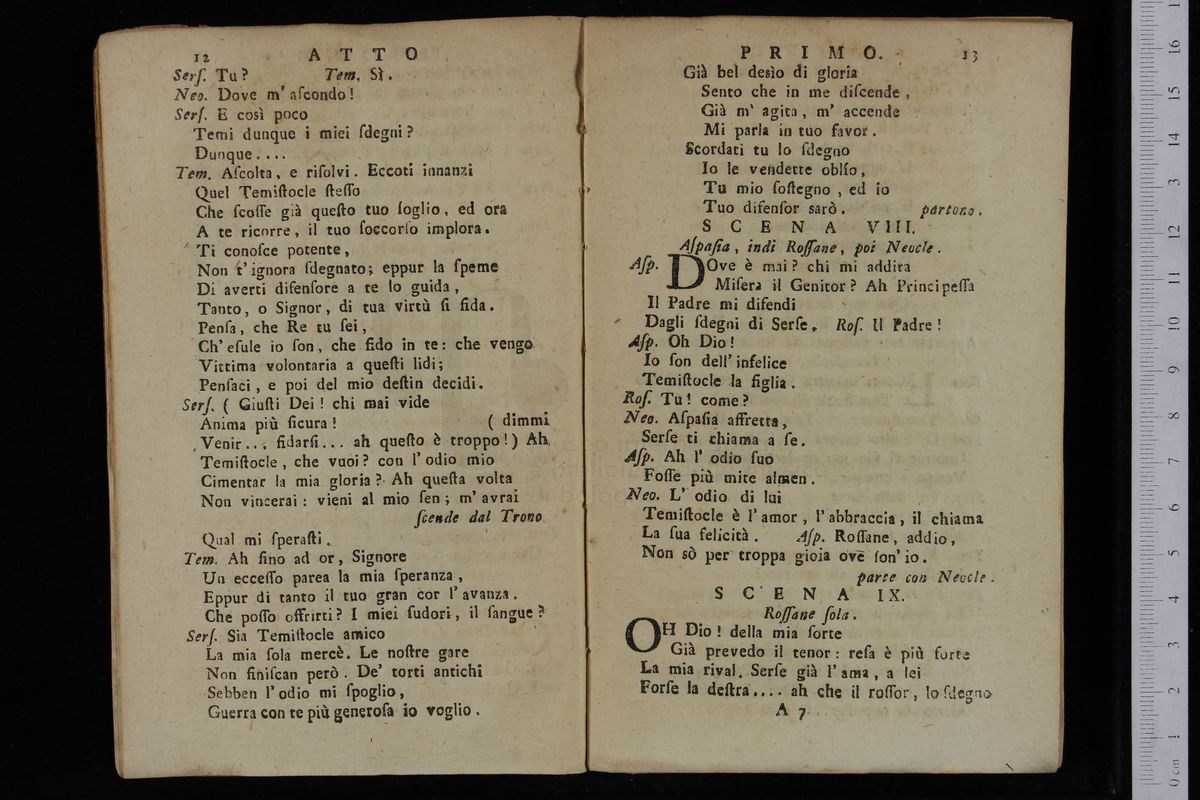 12 ATTO
Serſ. Tu? Tem. Sì.
Neo. Dove m' aſcondo!
Serſ. E così poco
Temi dunque i miei ſdegni?
Dunque....
Tem. Aſcolta, e riſolvi. Eccoti innanzi
Quel Temiſtocle ſteſſo
Che ſcoſſe già queſto tuo ſoglio, ed ora
A te ricorre, il tuo ſoccorſo implora.
Ti conoſce potente,
Non t'ignora ſdegnato; eppur la ſpeme
Di averti difenſore a te lo guida,
Tanto, o Signor, di tua virtù ſi fida.
Penſa, che Re tu ſei,
Ch'eſule io ſon, che fido in te: che vengo
Vittima volontaria a queſti lidi;
Penſaci, e poi del mio deſtin decidi.
Serſ. ( Giuſti Dei! chi mai vide
Anima più ſicura! ( dimmi
Venir... fidarſi... ah queſto è troppo!) Ah
Temiſtocle, che vuoi? con l'odio mio
Cimentar la mia gloria? Ah queſta volta
Non vincerai: vieni al mio ſen; m'avrai
ſcende dal Trono
Qual mi ſperaſti.
Tem. Ah fino ad or, Signore
Un ecceſſo parea la mia ſperanza,
Eppur di tanto il tuo gran cor l'avanza.
Che poſſo offrirti? I miei ſudori, il ſangue?
Serſ. Sia Temiſtocle amico
La mia ſola mercè. Le noſtre gare
Non finiſcan però. De' torti antichi
Sebben l'odio mi ſpoglio,
Guerra con te più generoſa io voglio.
PRIMO. 13
Già bel desìo di gloria
Sento che in me diſcende,
Già m' agita, m' accende
Mi parla in tuo favor.
Scordati tu lo ſdegno
Io le vendette oblío,
Tu mio ſoſtegno, ed io
Tuo difenſor sarò. partono.
SCENA VIII.
Aſpaſia, indi Roſſane, poi Neocle.
Aſp. DOve è mai? chi mi addita
Miſera il Genitor? Ah Principeſſa
Il Padre mi difendi
Dagli ſdegni di Serſe. Roſ. Il Padre!
Aſp. Oh Dio!
Io ſon dell'infelice
Temiſtocle la figlia.
Roſ. Tu! come?
Neo. Aſpaſia affretta,
Serſe ti chiama a ſe.
Aſp. Ah l' odio ſuo
Foſſe più mite almen.
Neo. L' odio di lui
Temiſtocle è l'amor, l'abbraccia, il chiama
La ſua felicità. Aſp. Roſſane, addio,
Non sò per troppa gioia ove ſon'io.
parte con Neocle.
SCENA IX.
Roſſane ſola.
OH Dio! della mia ſorte
Già prevedo il tenor: reſa è più forte
La mia rival. Serſe già l'ama, a lei
Forſe la deſtra.... ah che il roſſor, lo ſdegno
A 7
0 cm 1 2 3 4 5 6 7 8 9 10 11 12 13 14 15 16